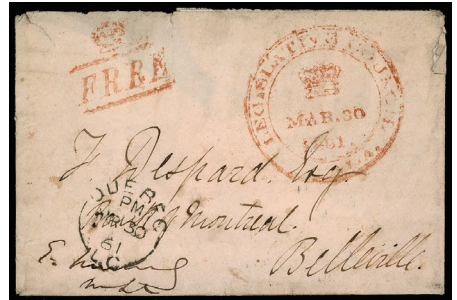 FREE
LEGISLATIVE COUNCIL
MAR. 30
1861
F. Despard. Esq.
Bank of Montreal.
Belleville.
QUEBEC
PM
MAR 30
61
L.C.